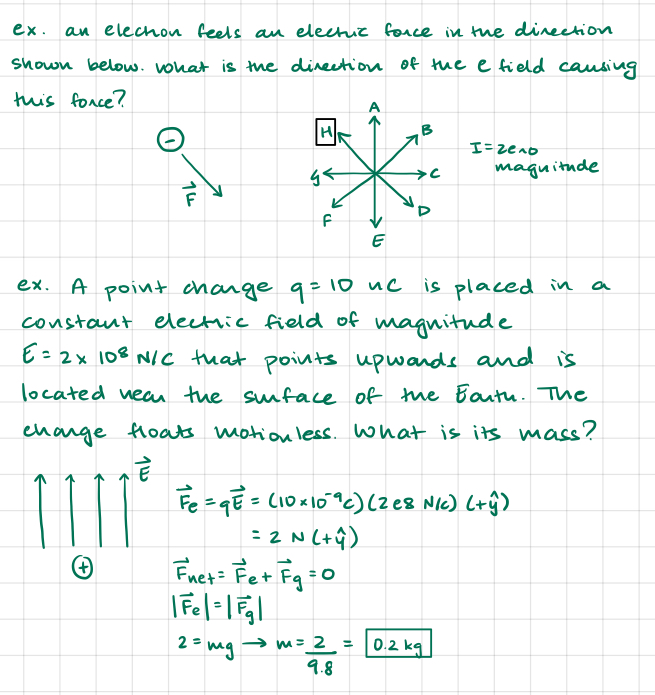 ex. an electron feels an electric force in the direction
shown below. what is the direction of the e field causing
this force?
A
H
B
I = zero
magnitude
G
C
F
D
E
−
F⃗
ex. A point charge q = 10 nC is placed in a
constant electric field of magnitude
E = 2 x 10⁸ N/C that points upwards and is
located near the surface of the Earth. The
charge floats motionless. What is its mass?
E⃗
+
F⃗e = qE⃗ = (10 x 10⁻⁹ C) (2e8 N/C) (+ŷ)
= 2 N (+ŷ)
F⃗net = F⃗e + F⃗g = 0
|F⃗e| = |F⃗g|
2 = mg → m = 2/9.8 = 0.2 kg